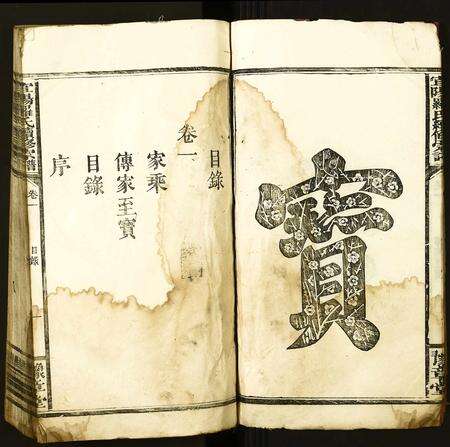 寶
目錄
卷一
家乘
傳家至寶
目錄
序
卷一
目錄
豫章堂